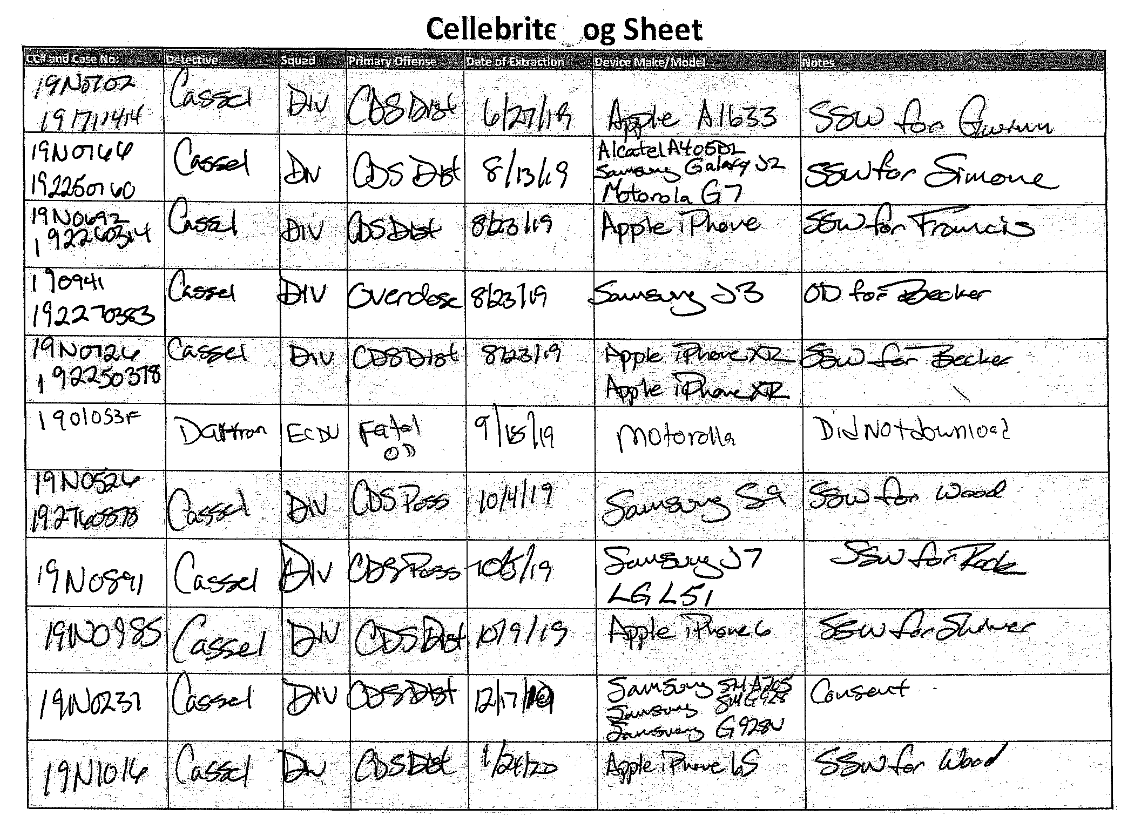 Cellebrite og Sheet
CC# and Case No. Detective Squad Primary Offense Date of Extraction Device Make/Model Notes
19N0702
191711414
Cassel Div CDS Dist 6/27/19 Apple A1633 SSW for
19N0766
192250160
Cassel Div CDS Dist 8/13/19
Alcatel A405DL
Samsung Galaxy J2
Motorola G7
SSW for Simone
19N0692
192260314
Cassel Div CDS Dist 8/23/19 Apple iPhone SSW for Francis
190941
192270383
Cassel Div Overdose 8/23/19 Samsung J3 OD for Becker
19N0726
192250378
Cassel Div CDS Dist 8/23/19
Apple iPhone XR
Apple iPhone XR
SSW for Becker
1901053F ECDU
Fatal
OD
9/18/19 Motorolla Did Not download
19N0526
192760578
Cassel Div CDS Poss 10/4/19 Samsung S9 SSW for Wood
19N0891 Cassel Div CDS Poss 10/5/19
Samsung J7
LG L51
SSW for
19N0985 Cassel Div CDS Dist 10/9/19 Apple iPhone 6 SSW for
19N0237 Cassel Div CDS Dist 12/17/19
Samsung SM A205
Samsung SM G928
Samsung G928V
Consent
19N1016 Cassel Div CDS Dist 1/24/20 Apple iPhone 6S SSW for Wood